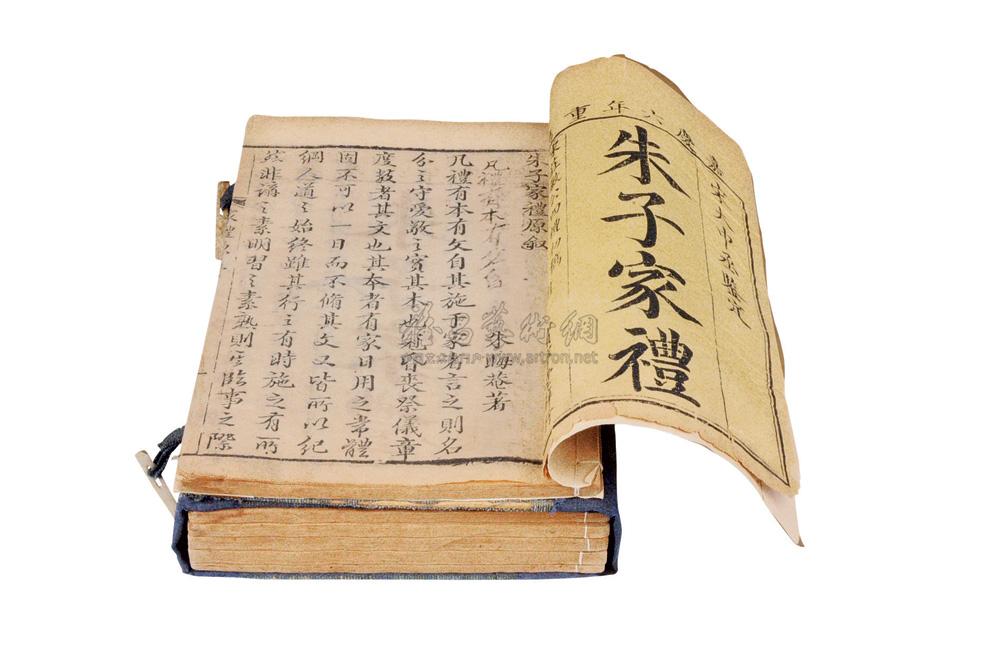 嘉慶六年重
朱子家禮
朱子家禮原叙
朱晦菴著
凡禮有本有文自其施于家者言之則名
分之守愛敬之實其本也冠昏喪祭儀章
度數者其文也其本者有家日用之常體
固不可以一日而不脩其文又皆所以紀
綱人道之始終雖其行之有時施之有所
然非講之素明習之素熟則其臨事之際
雅昌藝術網
www.artron.net